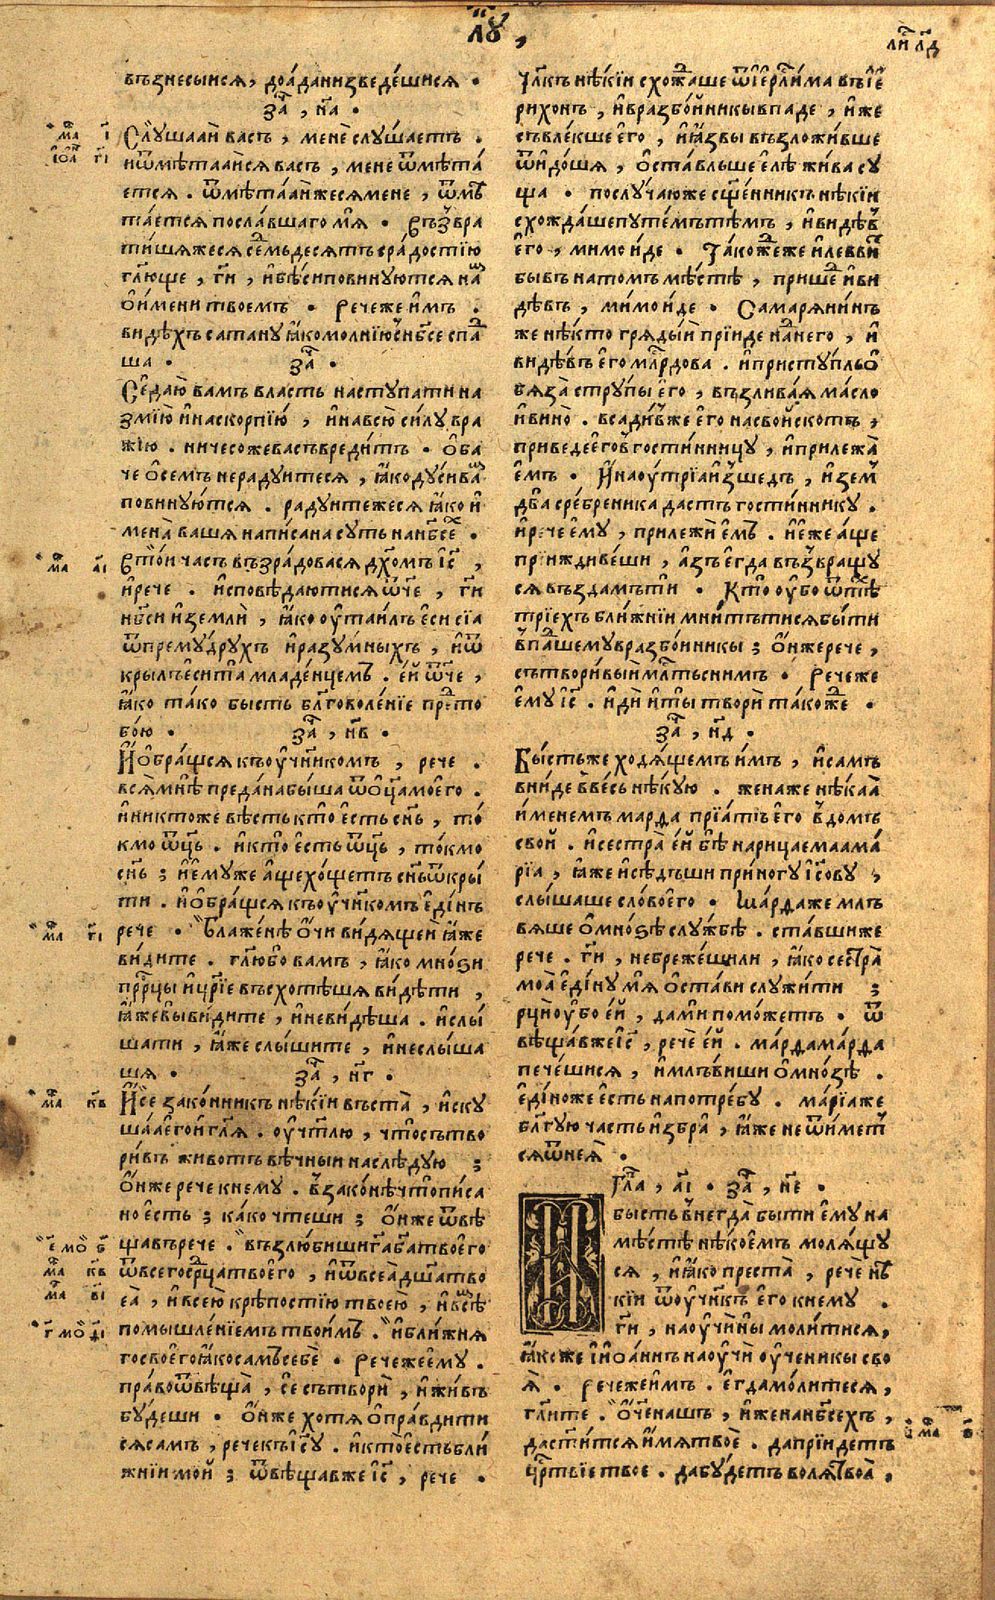 лꙋ,
ли л҃д
възнесыися, доаданизведе́шися .
за , н҃а .
Слꙋшааи васъ , менѐ слꙋ́шаетъ .
иѿмѣтааися васъ , мене ѿмѣта́
ется . ѿмѣта́аиже сямене , ѿмѣ
та́ется посла́вшаго мя . Възвра
ти́шяжеся семьдесятъ сра́достїю
гл҃юще , ги҃ , и҆бѣ́си повинꙋ́ются на
о҆и́мени твоемъ . Речеже и҆́мъ .
видѣхъ сатанꙋ ꙗ҆́ко мо́лнїю с нб҃се спа
ша . за .
Се даю̀ вамъ власть настꙋпати на
змїю̀ и҆наскорпїю́ , и҆навсю̀ си́лꙋ вра
жїю . ничесоже васъ вредитъ . О҆ба
че ѻ҆семъ нерадꙋитеся , ꙗ҆ко дꙋси ва
повинꙋ́ются . радꙋитежеся ꙗ҆́ко и҆
мена̀ вашя написана сꙋть нанб҃се .
Втои часъ възра́довася дх҃омъ і҆с ,
и҆рече . и҆сповѣдаютися ѿче , ги҃
нб҃си и҆землѝ , ꙗ҆ко ᲂу҆таи́лъ є҆си сїа
ѿпремꙋ́дрꙋхъ и҆разꙋмныхъ , и҆ѿ
крылъ є҆си та̀ младе́нцемъ . є҆и ѿче ,
ꙗ҆́ко та́ко бысть бл҃говоле́нїе пре то
бо́ю . за , н҃в .
И҆ ѻ҆бра́щся къᲂу҆чн҃комъ , рече .
вся̀мнѣ̀ преда́на быша ѿѻ҆ц҃а моего .
и҆никтоже вѣсть кто̀ є҆сть сн҃ъ , то́
кмо ѿц҃ъ . и҆кто̀ є҆сть ѿц҃ъ , то́кмо
сн҃ъ ; и҆є҆мꙋже а҆ще хо́щетъ сн҃ъ ѿкры́
ти . и҆ѻ҆бра́щся къᲂу҆чн҃комъ є҆ди́нъ
рече . Блаже́нѣ ѻ҆́чи ви́дящеи ꙗ҆́же
ви́дите . гл҃ю бо вамъ , ꙗ҆́ко мно́ѕи
прⷪ҇рцы и҆цр҃їе въсхотѣшя ви́дѣти ,
ꙗ҆́же вы ви́дите , и҆неви́дѣша . и҆слы́
шати , ꙗ҆́же слы́шите , и҆неслы́ша
шя . за , н҃г .
И҆се зако́нникъ нѣ́кїи въста̀ , и҆скꙋ
ша́а є҆гои гл҃я . ᲂу҆чт҃лю , что̀ сътво
ри́въ живо́тъ вѣ́чныи наслѣ́дꙋю ;
ѻ҆́нже рече книемꙋ . взако́нѣ что̀ писа
но є҆сть ; ка́ко чте́ши ; ѻ҆́нже ѿвѣ
щавъ рече . възлюби́ши га б҃а твоего
ѿвсего срдца твоего , и҆ѿ всеа̀ дш҃а тво
еа̀ , и҆всею крѣ́постїю твоею , и҆всѣ
помышле́нїемъ твои́мъ . и҆бли́жняа
го своего ꙗ҆ко са́мъ себѐ . Речеже емꙋ .
пра́во ѿвѣща̀ , се сътворѝ , и҆жи́въ
бꙋ́деши . ѻ҆́нже хотя̀ ѻ҆пра́вдити
ся са́мъ , рече къ і҆с҃ꙋ . и҆кто̀ є҆сть бли́
жнїи мой ; ѿвѣща́вже і҆с҃ , рече .
Чл҃къ нѣ́кїи схожаше ѿ і҆ерⷭ҇ли́ма въ і҆є
рихонъ , и҆вразбо́йникы впа́де , и҆же
съвле́кше є҆го̀ , и҆ꙗ҆́звы възложи́вше
ѿидо́шя , ѻ҆ста́вльше є҆лѣ̀ жи́ва сꙋ
ща . послꙋча́юже сще́нникъ нѣ́кїи
схожда́ше пꙋте́мъ тѣмъ , и҆видѣ́в
є҆го̀ , ми́мо и҆де . Та́коже же и҆левги
бывъ натомъ мѣстѣ , прише и҆ви
дѣвъ , ми́мо и҆де . Самаряни́нъ
же нѣ́кто гряды́й прїиде нанего , и҆
видѣ́въ є҆го мл҃рдова . и҆пристꙋпль ѻ҆
бяза̀ стрꙋпы є҆го , възлива́я ма́сло
и҆вино̀ . всади́вже є҆го на сво́й скотъ ,
приведе є҆го в гости́нницꙋ , и҆прилежа̀
є҆мъ . И҆на ᲂу҆трїа и҆зшедъ , и҆зем
два сре́бреника дастъ гости́нникꙋ .
и҆рече є҆мꙋ , прилежѝ є҆мъ . и҆є҆же а҆ще
прииждиве́ши , а҆зъ є҆гда възвращꙋ
ся възда́мъ ти . Кто̀ ᲂу҆бо ѿ тѣ
трїехъ бли́жнїи мни́тъ тися бы́ти
впа́шемꙋ вразбо́иникы ; ѻ҆́нже рече ,
сътвори́вый млⷭ҇ть с нимъ . Речеже
є҆мꙋ і҆с҃ . и҆ди и҆ты творѝ та́коже .
за , н҃д .
Бы́стьже ходя́щемъ и҆́мъ , и҆са́мъ
вни́де ввесь нѣ́кꙋю . женаже нѣ́каа
и҆менемъ ма́рѳа прїа́тъ є҆го̀ в домъ
сво́й . и҆сестра̀ є҆й бѣ нарица́емаа ма́
рїа , ꙗ҆же и҆сѣ́дъши при ногꙋ і҆сову ,
слы́шаше сло́во є҆го . Ма́рѳаже млъ
вяше ѻ҆мно́ѕѣ слꙋ́жбѣ . ста́вшиже
рече . ги҃ , небреже́ши ли , ꙗ҆ко сестра̀
моа̀ є҆ди́нꙋ мя̀ ѻ҆ста́ви слꙋжи́ти ;
рцѝ ᲂу҆бо є҆й , да ми помо́жетъ . ѿ
вѣща́вже і҆с҃ , рече є҆й . ма́рѳа ма́рѳа
пече́шися , и҆млъви́ши ѻ҆мно́зѣ .
є҆ди́ноже є҆сть напотре́бꙋ . марїаже
бл҃гꙋю часть и҆збра̀ , ꙗ҆же не ѿи́мет
ся ѿнея̀ .
Гла , а҃і . за , н҃е .
И҆бысть внегда̀ бы́ти є҆мꙋ на
мѣ́стѣ нѣкоемъ моля́щꙋ
ся , и҆ꙗ҆ко преста̀ , рече нѣ
кїи ѿ ᲂу҆чн҃къ є҆го кнемꙋ .
ги҃ , наᲂу҆чи ны моли́тися ,
ꙗ҆коже і҆ѡа́ннъ наᲂу҆чи ᲂу҆ченикы сво
я̀ . речежеимъ . є҆гда мо́литеся ,
гл҃ите . ѻ҆́че нашъ , и҆же на нб҃сехъ ,
да ст҃ится и҆мя твоѐ . да прїидетъ
црⷭ҇твїе твоѐ . да бꙋ́детъ воля твоа̀ ,